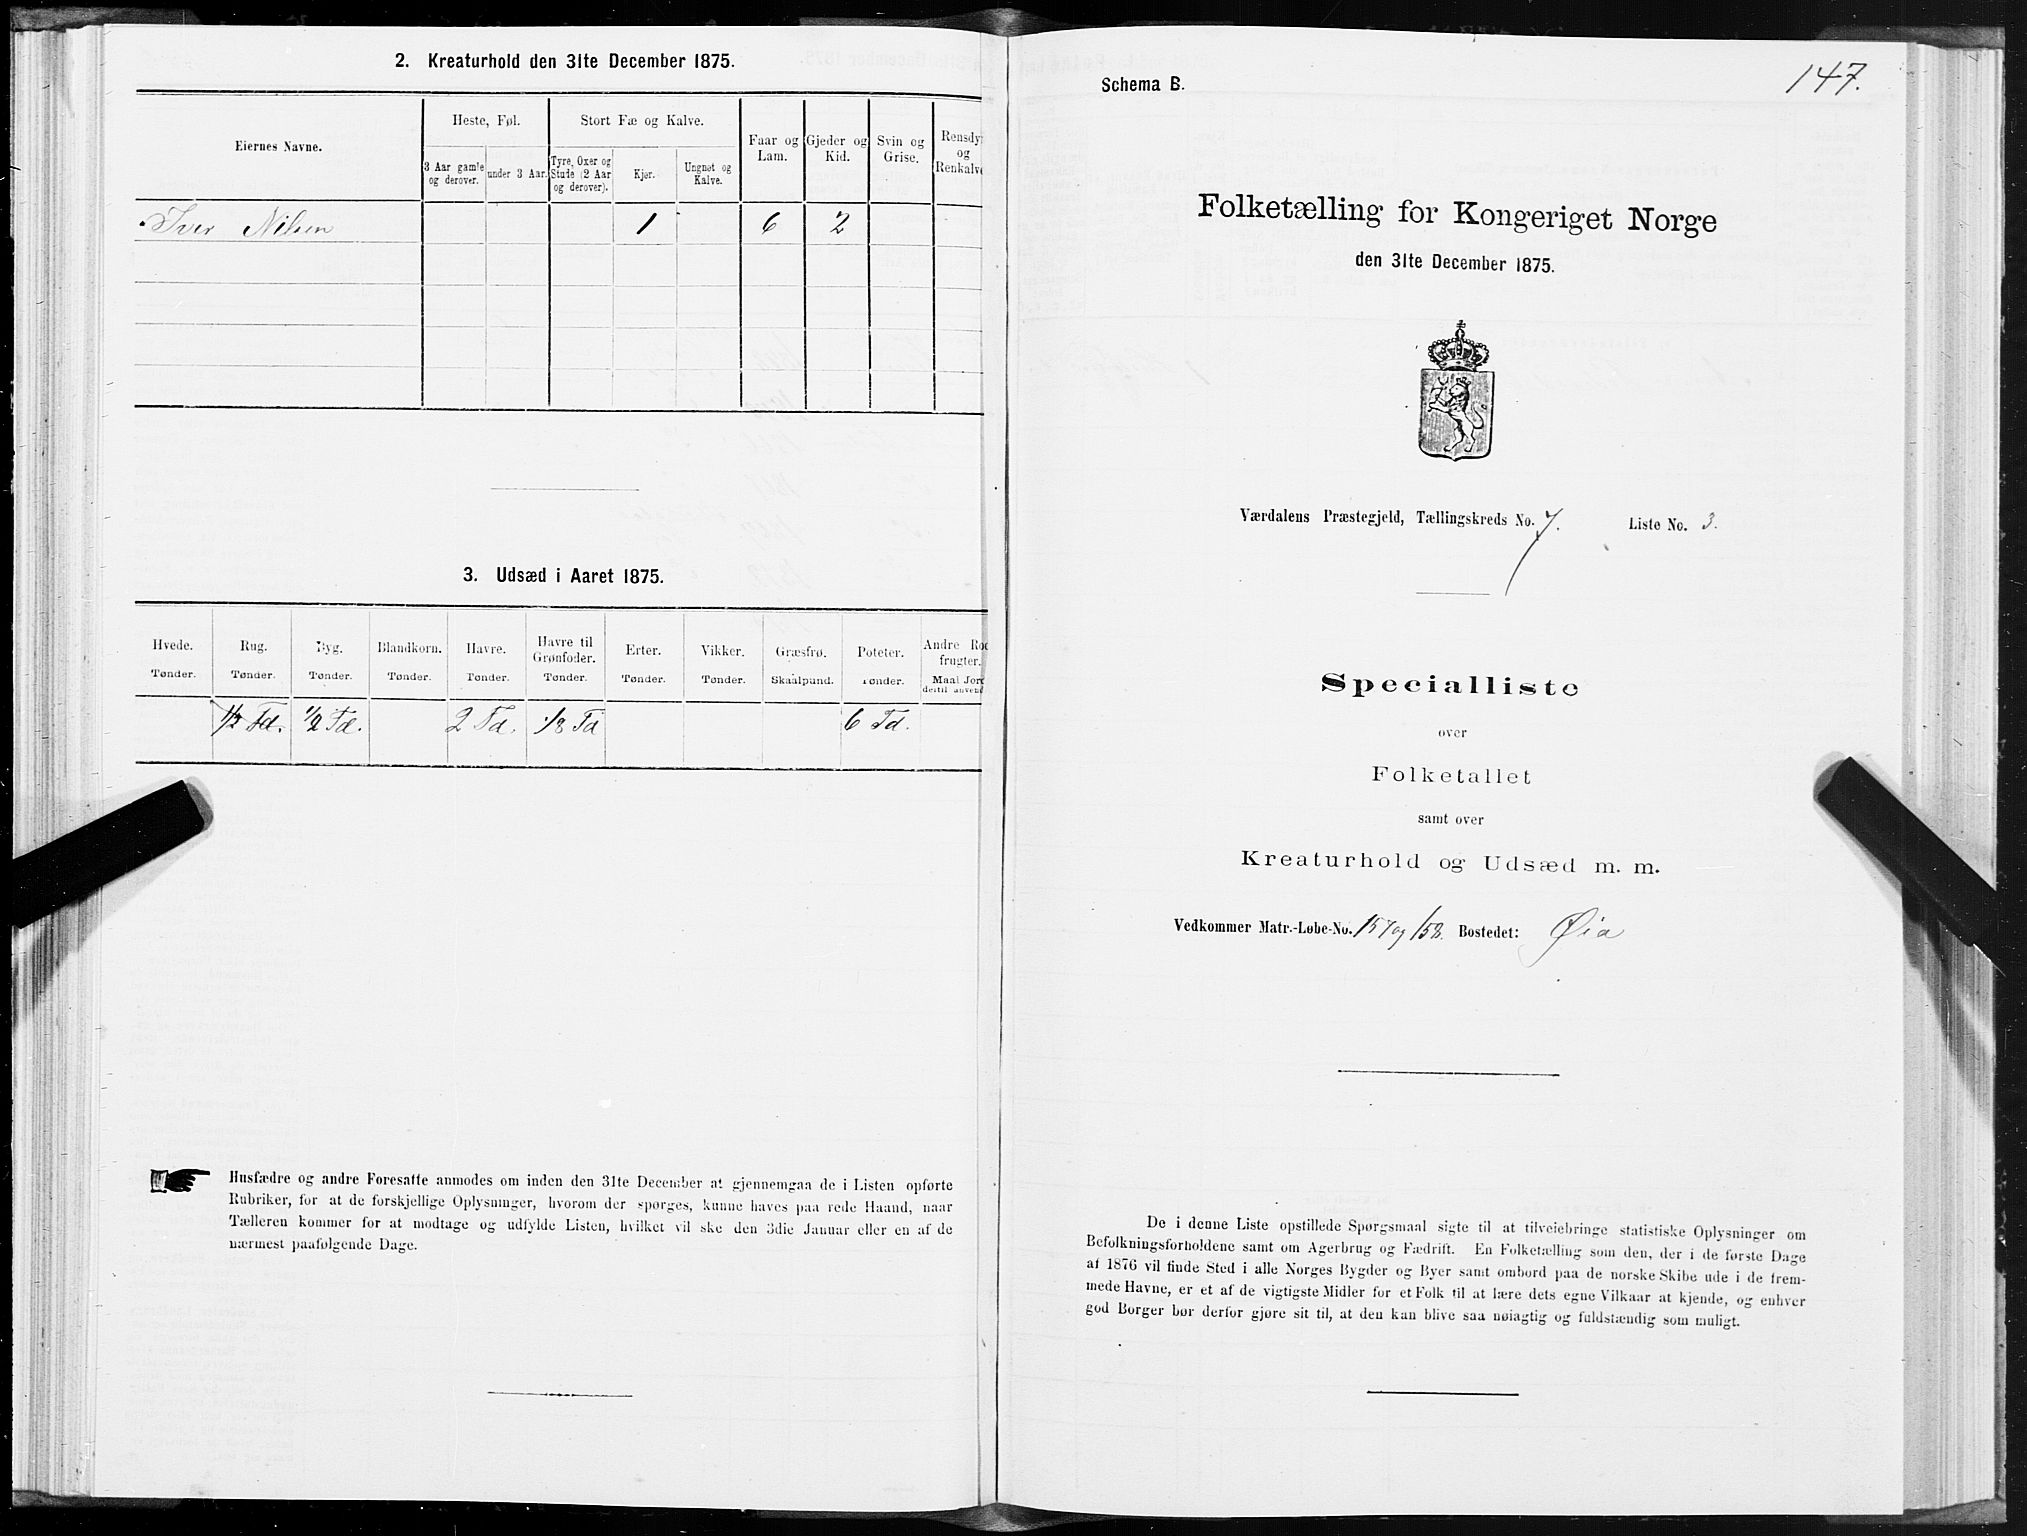 2. Kreaturhold den 31te December 1875.
Eiernes Navne.
Heste, Føl.
Stort Fæ og Kalve.
Faar og Lam.
Gjeder og Kid.
Svin og Grise.
Rensdy
og
Renkalve
3 Aar gamle og derover.
under 3 Aar.
Tyre, Oxer og Stude (2 Aar og derover).
Kjør.
Ungnøt og Kalve.
Iver Nilsen 1 6 2
3. Udsæd i Aaret 1875.
Hvede. Rug. Byg. Blandkorn. Havre. Havre til Grønfoder. Erter. Vikker. Græsfrø. Poteter. Andre Rod
frugter.
Tønder. Tønder. Tønder. Tønder. Tønder. Tønder. Tønder. Tønder. Skaalpund. Tønder. Maal Jord
dertil anvend
1/2 Td. 1/2 Td. 2 Td. 1/8 Td 6 Td.
Husfædre og andre Foresatte anmodes om inden den 31te December at gjennemgaa de i Listen opførte
Rubriker, for at de forskjellige Oplysninger, hvorom der spørges, kunne haves paa rede Haand, naar
Tælleren kommer for at modtage og udfylde Listen, hvilket vil ske den 3die Januar eller en af de
nærmest paafølgende Dage.
147.
Schema B.
Folketælling for Kongeriget Norge
den 31te December 1875.
Værdalens Præstegjeld, Tællingskreds No. 7. Liste No. 3.
Specialliste
over
Folketallet
samt over
Kreaturhold og Udsæd m. m.
Vedkommer Matr.-Løbe-No. 157 og 158. Bostedet: Øia
De i denne Liste opstillede Spørgsmaal sigte til at tilveiebringe statistiske Oplysninger om
Befolkningsforholdene samt om Agerbrug og Fædrift. En Folketælling som den, der i de første Dage
af 1876 vil finde Sted i alle Norges Bygder og Byer samt ombord paa de norske Skibe ude i de frem-
mede Havne, er et af de vigtigste Midler for et Folk til at lære dets egne Vilkaar at kjende, og enhver
god Borger bør derfor gjøre sit til, at den kan blive saa nøiagtig og fuldstændig som muligt.